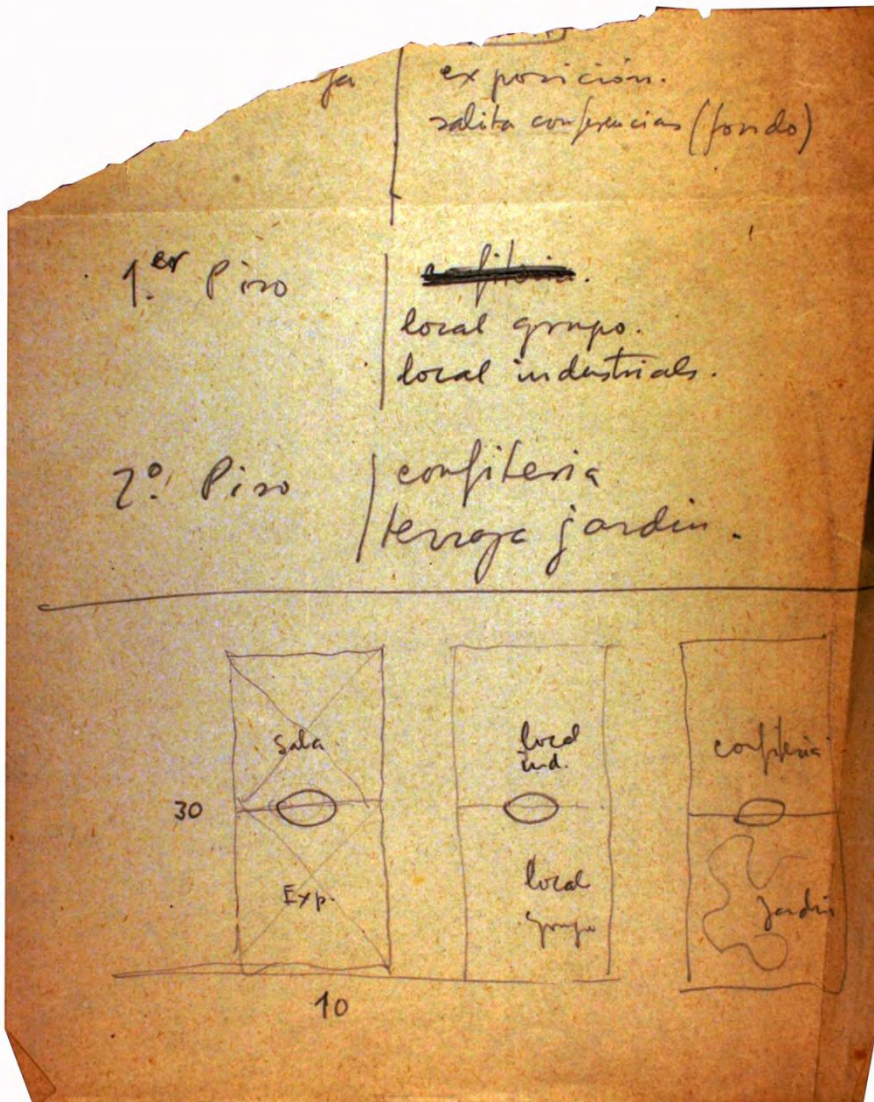 ja
exposición.
salita conferencias (fondo)
1.er Piso
confiteria.
local grupo.
local industrials.
2º. Piso
confiteria
terraza jardin.
Sala
local
ind.
confiteria
30
Exp.
local
grupo
jardin
10